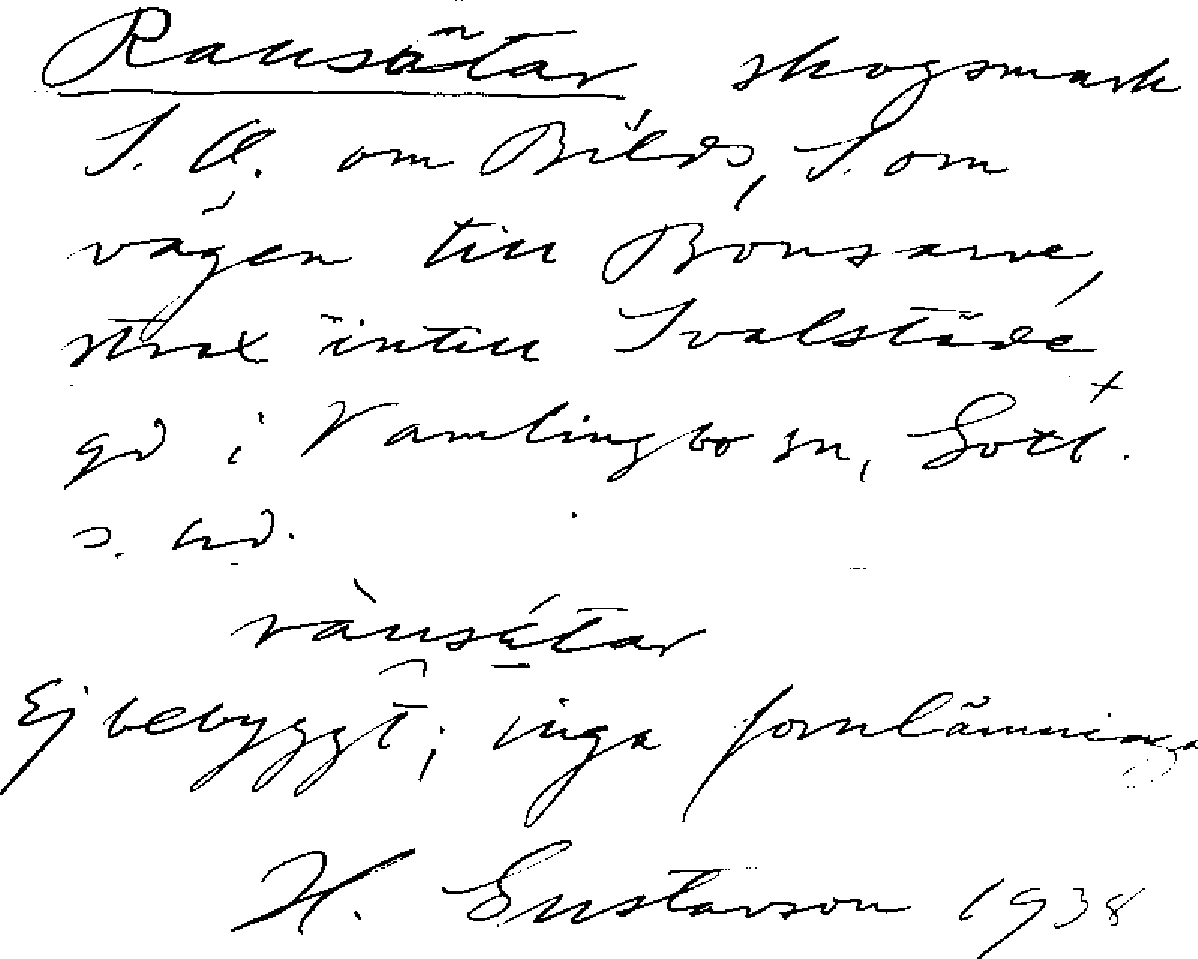 Rausätar, skogsmark
S. O. om Bilds, S. om
vägen till Bonsarve,
strax intill Svalstäde
gd i Vamlingbo sn, Gotl.
s. hd.
ràusätar
Ej bebyggt; inga fornlämninga
H. Gustavson 1938